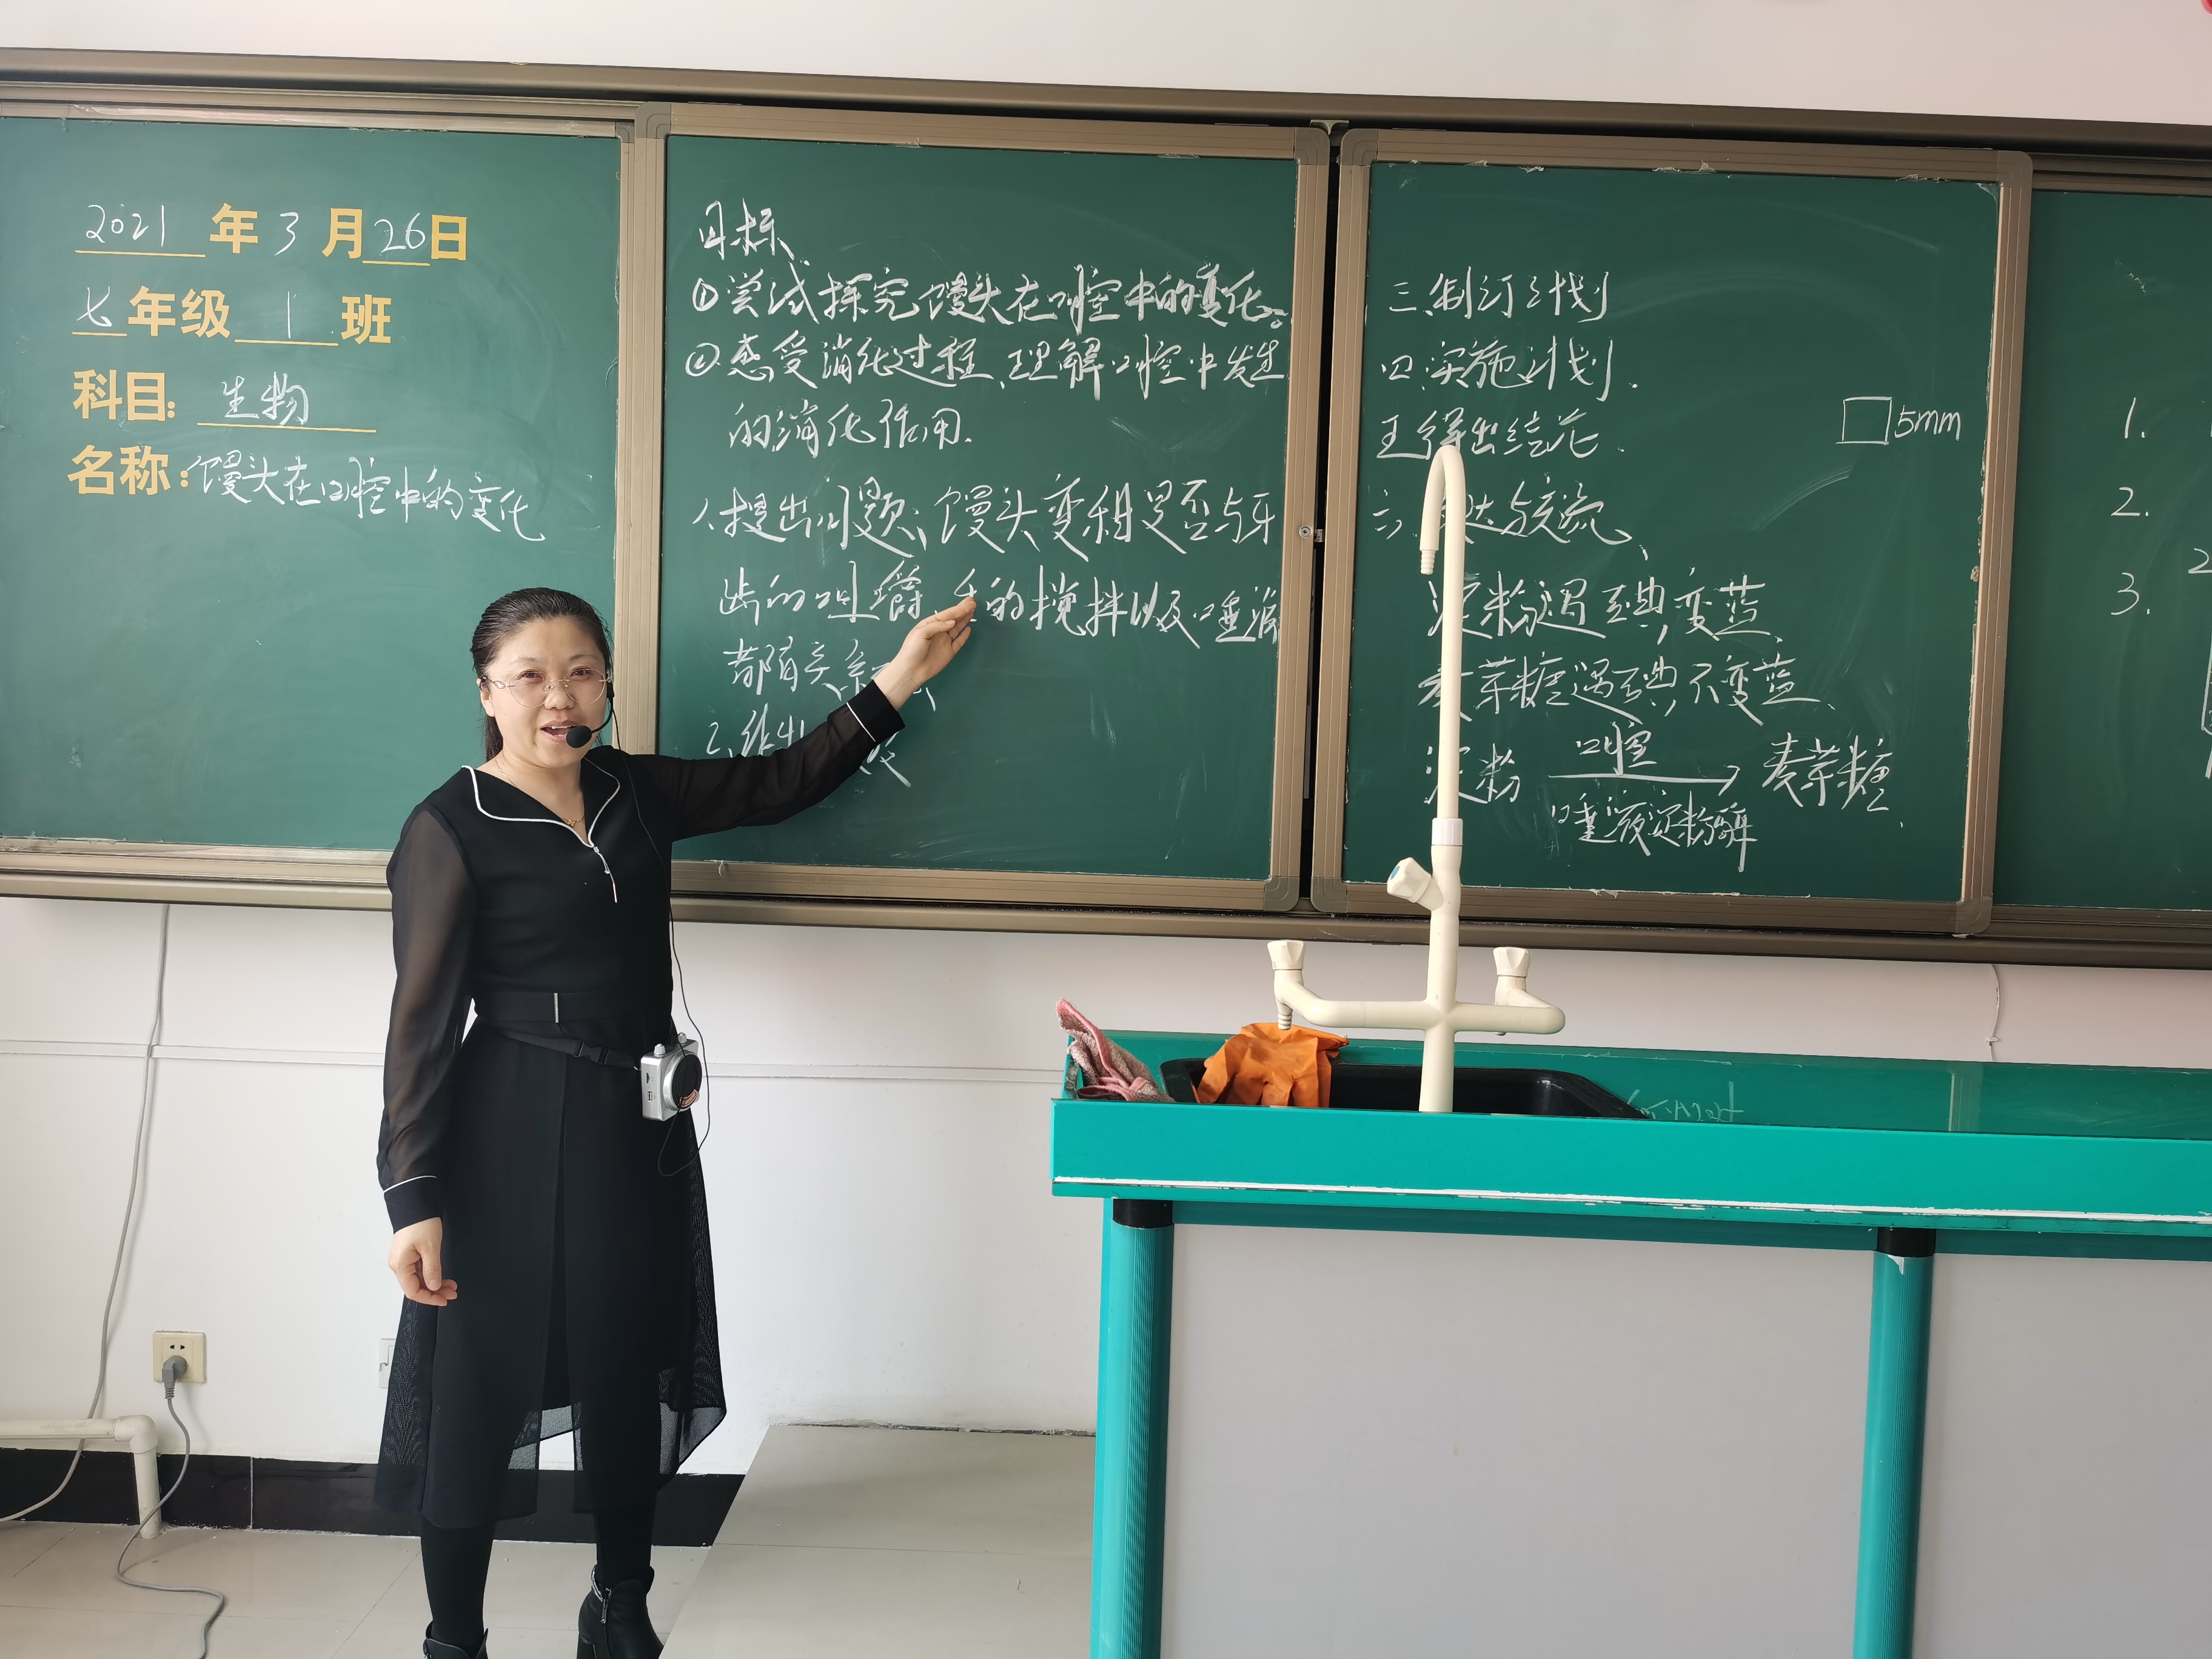 2021年3月26日
七年级1班
科目：生物
名称：馒头在口腔中的变化
目标
①尝试探究馒头在口腔中的变化。
②感受消化过程、理解口腔中发生
的消化作用.
一、提出问题：馒头变甜是否与牙
齿的咀嚼、舌的搅拌以及唾液
都有关系
二、作出
三、制订计划
四、实施计划.
五、得出结论.
六、表达与交流、
淀粉遇碘变蓝、
麦芽糖遇碘不变蓝、
口腔
淀粉 → 麦芽糖.
唾液淀粉酶
□5mm
1.
2.
3.